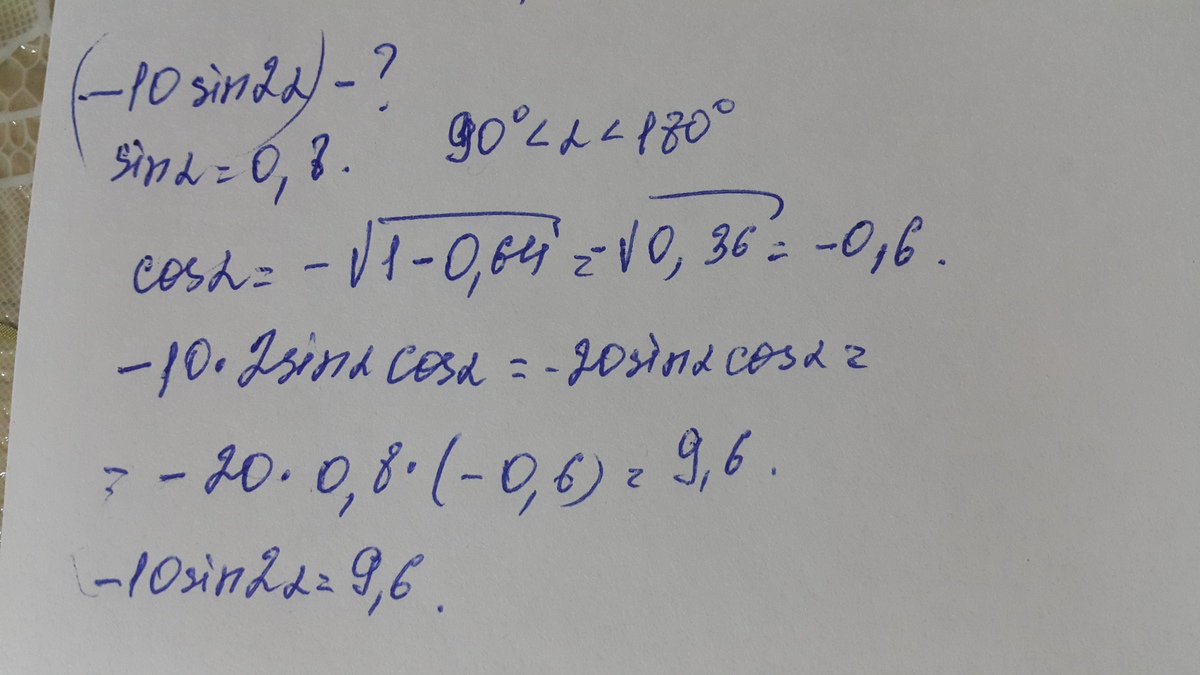 (-10 sin2α) - ?
sinα = 0,8. 90° < α < 180°
cosα = -√1-0,64 = -√0,36 = -0,6.
-10·2sinα cosα = -20sinα cosα =
= -20· 0,8·(-0,6) = 9,6.
-10sin2α = 9,6.